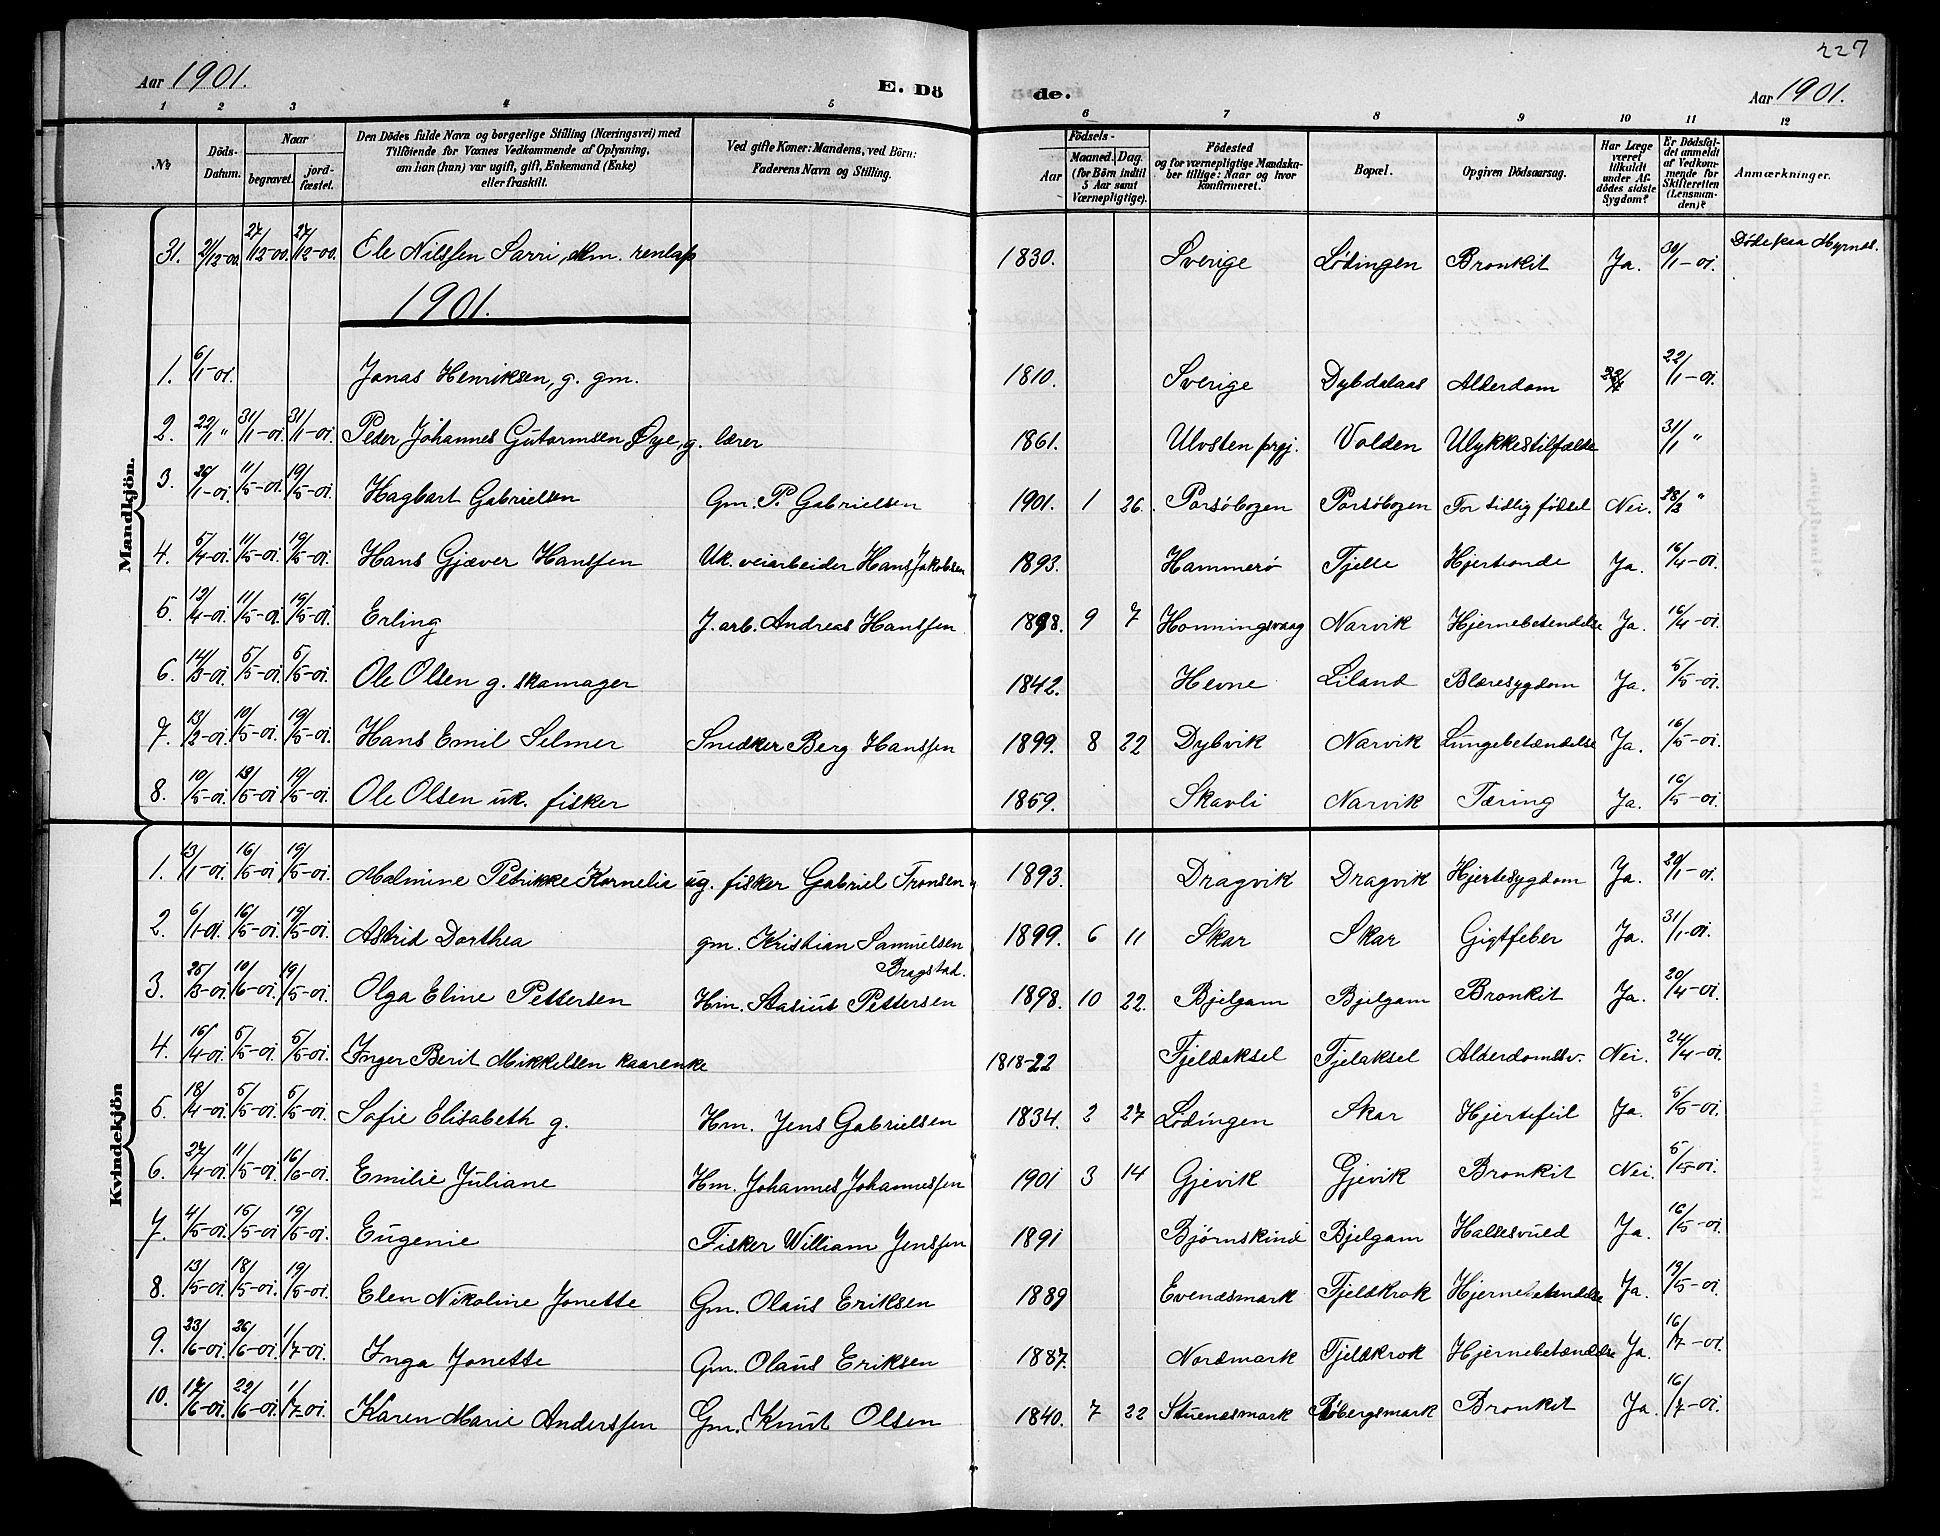 227
Aar 1901. E. Dö de. Aar 1901.
1 2 3 4 5 6 7 8 9 10 11 12
№ Döds-Datum. Naar begravet. jordfæstet. Den Dödes fulde Navn og borgerlige Stilling (Næringsvei) med Tilföiende for Voxnes Vedkommende af Oplysning, om han (hun) var ugift, gift, Enkemand (Enke) eller fraskilt. Ved gifte Koner: Mandens, ved Börn: Faderens Navn og Stilling. Födsels- Aar Maaned. Dag. (for Börn indtil 5 Aar samt Værnepligtige). Födested og for værnepligtige Mandskaber tillige: Naar og hvor konfirmeret. Bopæl. Opgiven Dödsaarsag. Har Læge været tilkaldt under Afdödes sidste Sygdom? Er Dödsfaldet anmeldt af Vedkommende for Skifteretten (Lensmanden)? Anmærkninger.
Mandkjön.
31. 2/12-00. 27/12-00. 27/12-00. Ole Nilssen Sarri, renlap 1830. Sverige Lødingen Bronkit Ja. 30/1-01. Døde paa Myrnes.
1901.
1. 6/1-01. Jonas Henriksen, g. gm. 1810. Sverige Dybdalaas Alderdom 22/1-01.
2. 22/1 " 31/1-01. 31/1-01. Peder Johannes Gutormsen Øye, g. lærer 1861. Ulvsten prgj. Volden Ulykkestilfælde 31/1 "
3. 26/1-01. 11/5-01. 19/5-01. Hagbart Gabrielsen Gm. P. Gabrielsen 1901. 1 26. Forsøbogen Forsøbogen For tidlig fødsel Nei. 28/3 "
4. 5/4-01. 11/5-01. 19/5-01. Hans Gjæver Hanssen Uk. veiarbeider Hans Jakobsen 1893. Hammerø Fjelle Hjerteonde Ja. 16/4-01.
5. 13/4-01. 11/5-01. 19/5-01. Erling J. arb. Andreas Hanssen 1898. 9 7 Honningsvaag Narvik Hjernebetændelse Ja. 16/4-01.
6. 14/3-01. 5/5-01. 5/5-01. Ole Olsen g. skomager 1842. Hevne Liland Blæresygdom Ja. 5/5-01.
7. 13/2-01. 10/5-01. 19/5-01. Hans Emil Selmer Snedker Berg Hanssen 1899. 8 22 Dybvik Narvik Lungebetændelse Ja. 16/5-01.
8. 10/5-01. 13/5-01 19/5-01. Ole Olsen uk. fisker 1859. Skavli Narvik Tæring Ja. 16/5-01.
Kvindekjön
1. 13/1-01. 16/5-01. 19/5-01. Malmine Petrikke Kornelia ug. fisker Gabriel Tronsen 1893. Dragvik Dragvik Hjertesygdom Ja. 29/1-01.
2. 6/1-01. 16/5-01. 19/5-01. Astrid Dorthea gm. Kristian Samuelsen Bragstad. 1899. 6 11 Skar Skar Gigtfeber Ja. 31/1-01.
3. 25/3-01. 10/6-01. 19/5-01. Olga Eline Pettersen Hm. Stasius Pettersen 1898. 10 22. Bjelgam Bjelgam Bronkit Ja. 20/4-01.
4. 16/4-01. 5/5-01. 5/5-01. Inger Berit Mikkelsen kaarenke 1818-22 Fjeldaksel Fjelaksel Alderdomssv. Nei. 24/4-01.
5. 18/4-01. 5/5-01. 5/5-01. Sofie Elisabeth g. Hm. Jens Gabrielsen 1834. 2 27 Lødingen Skar Hjertefeil Ja. 5/5-01.
6. 27/4-01. 11/5-01. 16/6-01. Emilie Juliane Hm. Johannes Johannessen 1901 3 14 Gjevik Gjevik Bronkit Nei. 5/5-01.
7. 4/5-01. 15/5-01. 19/5-01. Eugenie Fisker William Jenssen 1891 Bjørnskind Bjelgam Halsesvuld Ja. 16/5-01.
8. 13/5-01. 18/5-01. 19/5-01. Elen Nikoline Jonette Gm. Olaus Eriksen 1889 Evenesmark Fjeldkrok Hjernebetændelse Ja. 19/5-01.
9. 23/6-01. 26/6-01. 1/7-01. Inga Jonette Gm. Olaus Eriksen 1887. Nordmark Fjeldkrok Hjernebetændelse Ja. 16/7-01.
10. 17/6-01. 22/6-01. 1/7-01. Karen Marie Anderssen Gm. Knut Olsen 1840. 7 22 Stuenesmark Tobergsmark Bronkit Ja. 16/7-01.